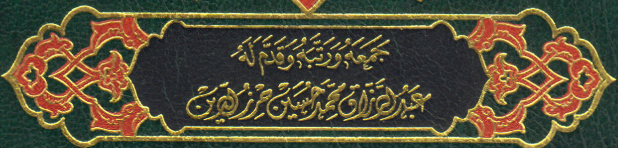 جَمَعَهُ وَرَتَّبَهُ وَقَدَّمَ لَهُ
عبد الرزاق محمد حسين حرز الدين